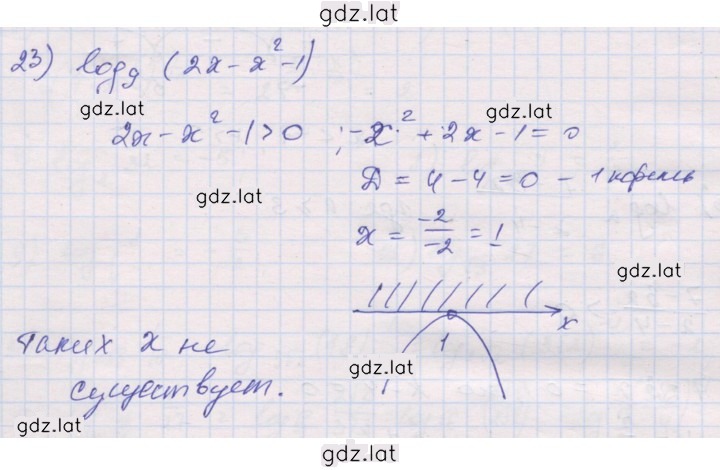 gdz.lat
23) log₉ (2x - x² - 1)
gdz.lat
gdz.lat
2x - x² - 1 > 0 ; -x² + 2x - 1 = 0
D = 4 - 4 = 0 - 1 корень
gdz.lat
x = -2/-2 = 1
gdz.lat
x
1
Таких x не
gdz.lat
существует.
gdz.lat
gdz.lat